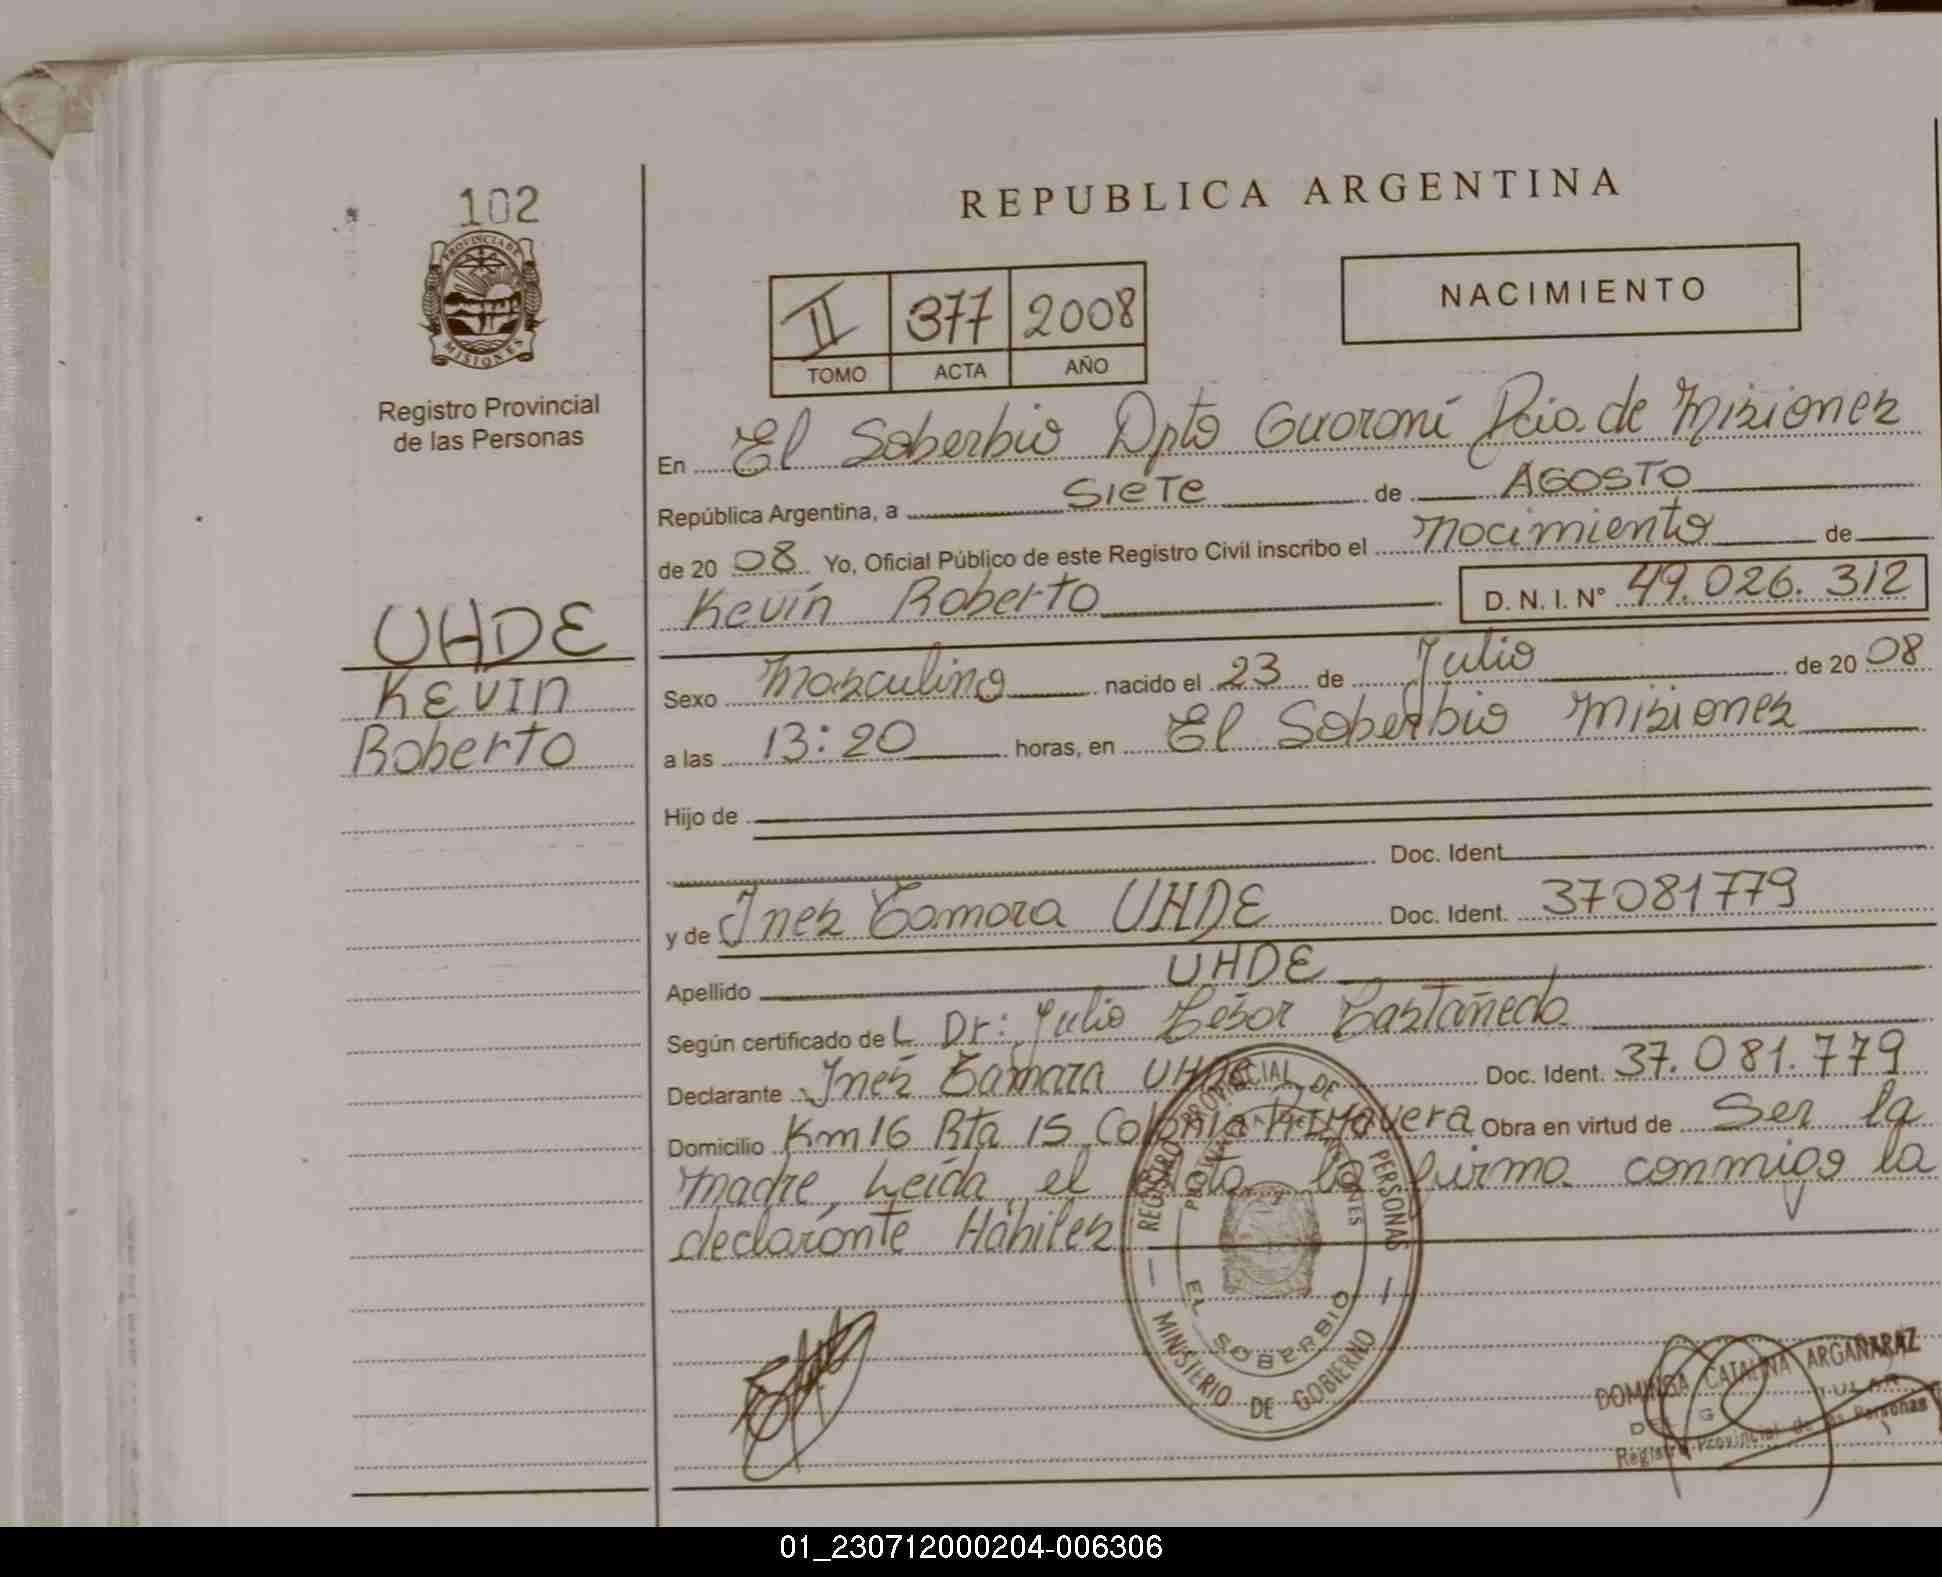 102
PROVINCIA DE
MISIONES
Registro Provincial
de las Personas
REPUBLICA ARGENTINA
II 377 2008
TOMO ACTA AÑO
NACIMIENTO
En El Soberbio Dpto Guaraní Pcia. de Misiones
República Argentina, a SIETE de AGOSTO
de 2008 Yo, Oficial Público de este Registro Civil inscribo el Nacimiento de
Kevin Roberto D. N. I. N° 49.026.312
UHDE
KEVIN
Roberto
Sexo Masculino nacido el 23 de Julio de 2008
a las 13:20 horas, en El Soberbio Misiones
Hijo de
Doc. Ident.
y de Ines Tamara UHDE Doc. Ident. 37081779
Apellido UHDE
Según certificado de L Dr: Julio César Castañeda
Declarante Inés Tamara UHDE Doc. Ident. 37.081.779
Domicilio Km 16 Rta 15 Colonia Primavera Obra en virtud de Ser la
madre, Leída el Acta la firma conmigo la
declarante Hábiles
REGISTRO PROVINCIAL DE PERSONAS
MINISTERIO DE GOBIERNO
EL SOBERBIO
DOMINGA CATALINA ARGAÑARAZ
Registro Provincial de las Personas
01_230712000204-006306